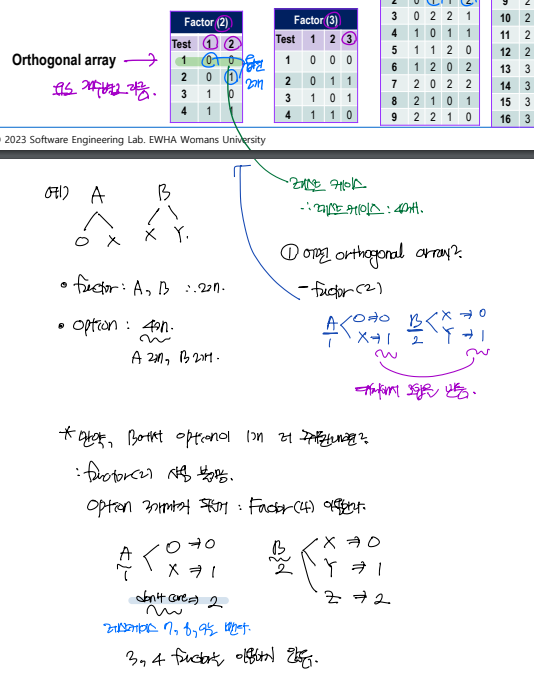 Factor (2)
Test 1 2
1 0 0
2 0 1
3 1 0
4 1 1
Factor (3)
Test 1 2 3
1 0 0 0
2 0 1 1
3 1 0 1
4 1 1 0
2 0 1 1 2
3 0 2 2 1
4 1 0 1 1
5 1 1 2 0
6 1 2 0 2
7 2 0 2 2
8 2 1 0 1
9 2 2 1 0
9 2
10 2
11 2
12 2
13 3
14 3
15 3
16 3
Orthogonal array
옵션
2개
2023 Software Engineering Lab. EWHA Womans University
테스트 케이스
∴ 테스트 케이스 : 4개.
예) A B
O X X Y.
① 어떤 orthogonal array?
- factor(2)
• factor : A, B ∴ 2개.
• option : 4개.
A 2개, B 2개.
A 1 O ⇒ 0 X ⇒ 1
B 2 X ⇒ 0 Y ⇒ 1
* 만약, B에서 option이 1개 더 추가된다면?
: factor(2) 사용 불가능.
option 3개까지 : Factor(4) 이용한다.
A 1 O ⇒ 0 X ⇒ 1
don't care ⇒ 2
B 2 X ⇒ 0 Y ⇒ 1 Z ⇒ 2
테스트케이스 7, 8, 9는
3, 4 factor는 이용하지 않음.